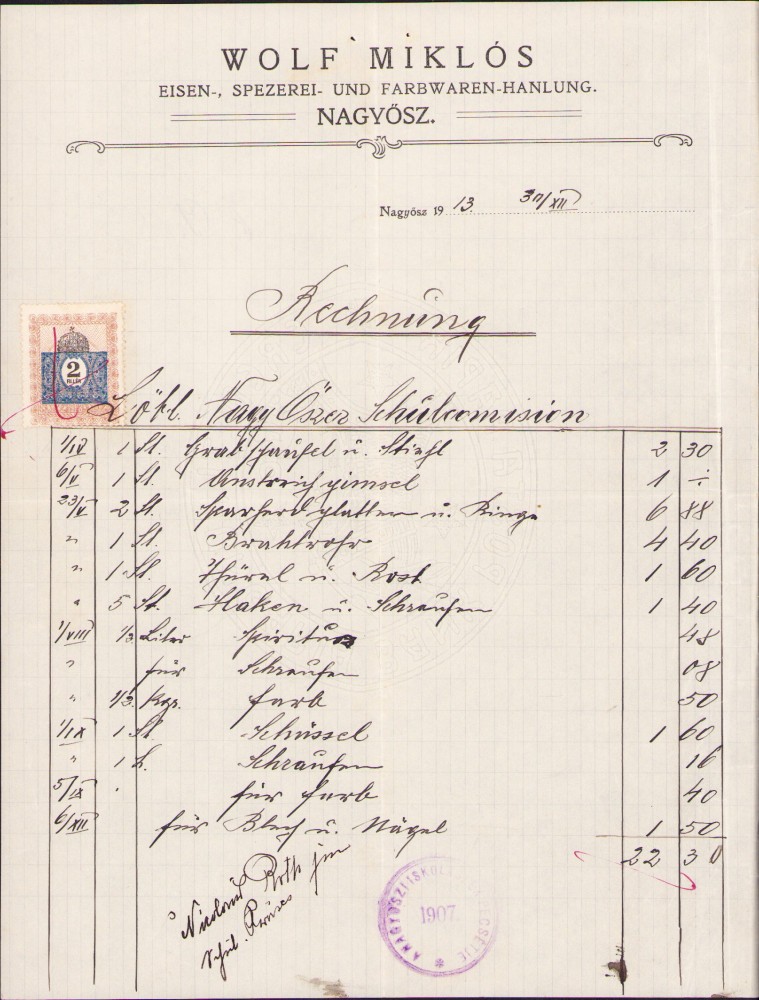 WOLF MIKLÓS
EISEN-, SPEZEREI- UND FARBWAREN-HANLUNG.
NAGYŐSZ.
Nagyősz 19 13. 30/XII
Rechnung
2
FILLÉR
Löbl. Nagy Öszer Schulcomision
1/IV 1 St. Grabschaufel u. Stiehl 2 30
6/V 1 St. Anstreichpimsel 1 ÷
23/V 2 St. Sparherdplatten u. Ringe 6 88
" 1 St. Brahtrohr 4 40
" 1 St. Thürel u. Rost 1 60
" 5 St. Haken u. Schraufen 1 40
1/VIII 1/2 Liter Spiritus 48
" für Schraufen 08
" 1/2 Kgr. farb 50
1/IX 1 St. Schüssel 1 60
" 1 St. Schraufen 16
5/IX für farb 40
6/XII für Blech u. Nägel 1 50
22 30
Roth jun
Schul.
A NAGYŐSZI ISKOL PECSÉTJE
1907